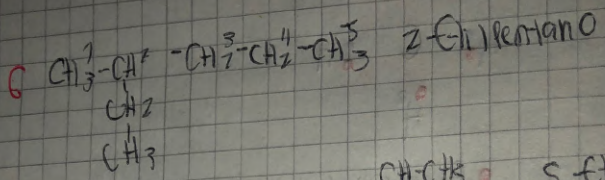 6 CH₃¹-CH²-CH₂³-CH₂⁴-CH₃⁵ 2-Etilpentano
CH2
CH3
CH-CH₃